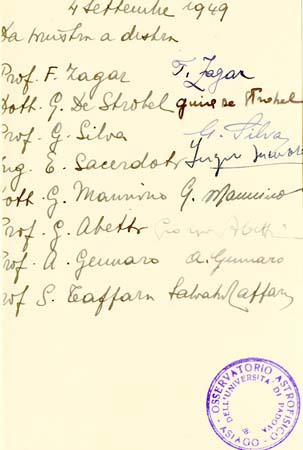 4 settembre 1949
Da sinistra a destra
Prof. F. Zagar F. Zagar
Dott. G. De Strobel
Prof. G. Silva G. Silva
Ing. E. Sacerdote
Dott. G. Mannino G. Mannino
Prof. G. Abetti Giorgio Abetti
Prof. A. Gennaro A. Gennaro
Prof S. Taffara Salvatore Taffara
OSSERVATORIO ASTROFISICO
DELL'UNIVERSITÀ DI PADOVA
ASIAGO